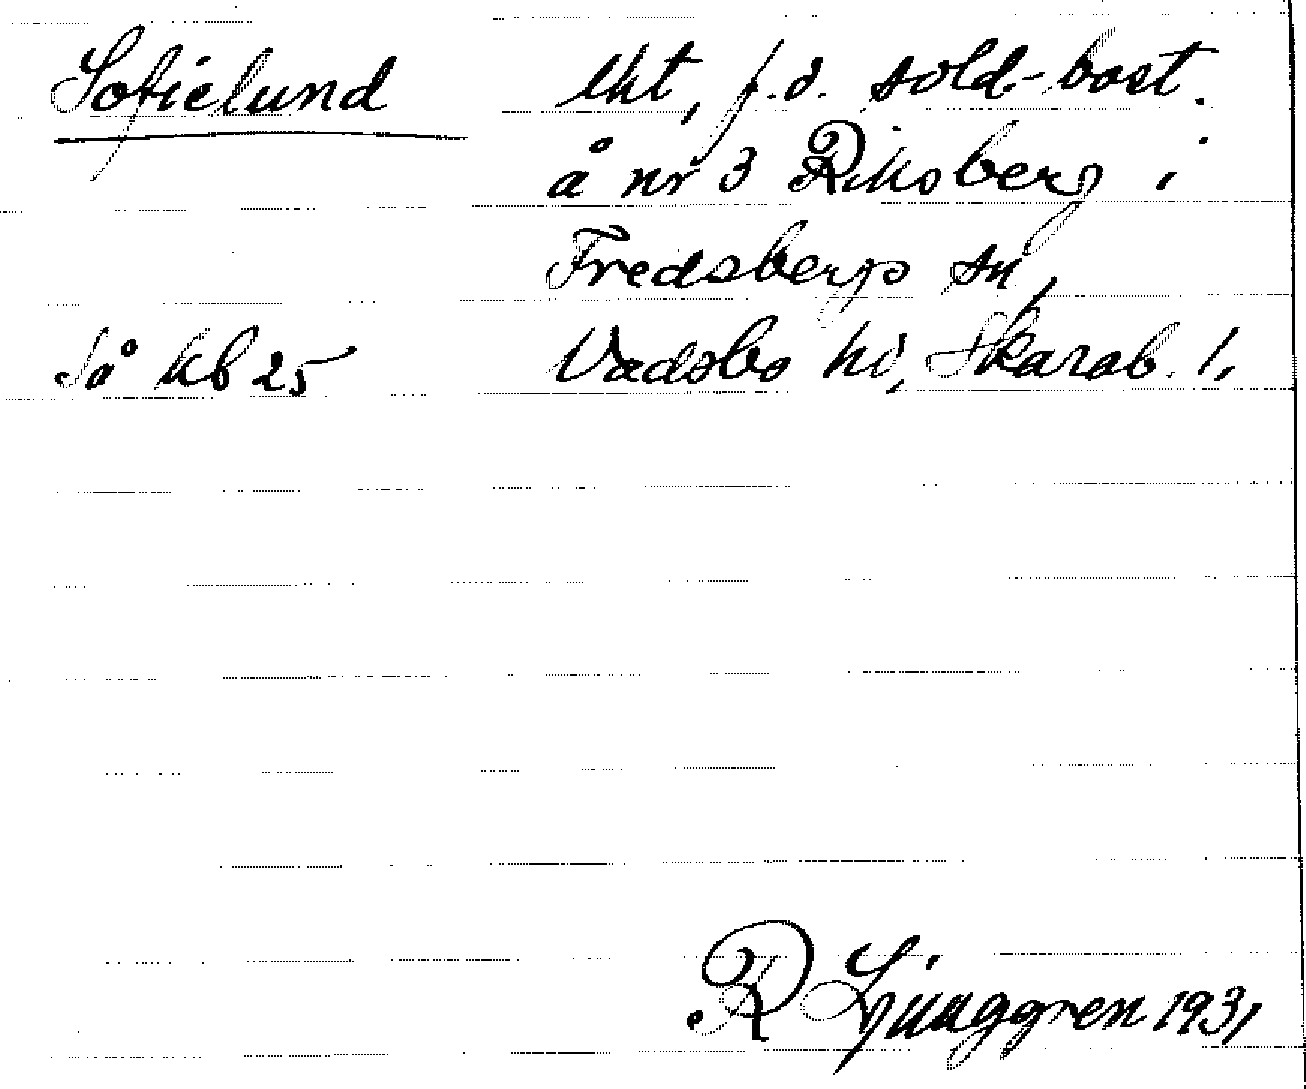 Sofielund lht, f.d. sold-bost.
å nr 3 Riksberg i
Fredsbergs sn,
Så kb 25 Vadsbo hd, Skarab. l.
R Ljunggren 1931